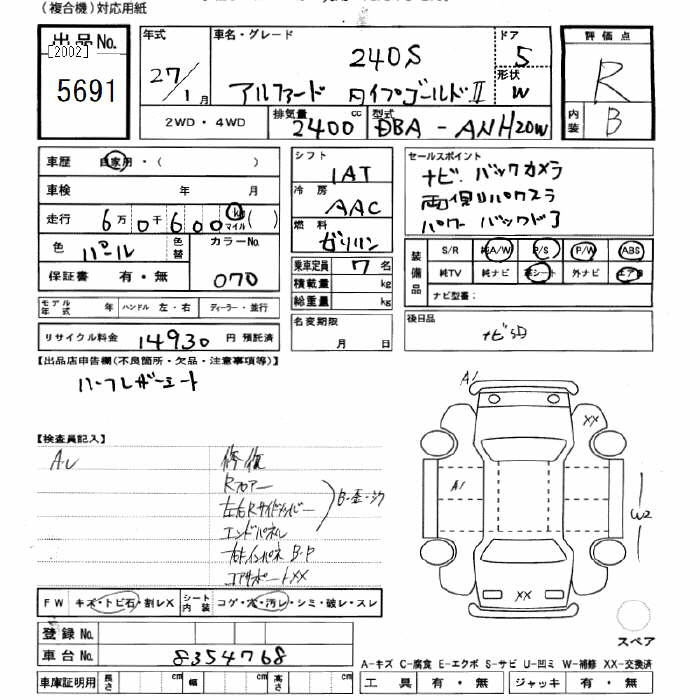 (複合機)対応用紙
出品No.
[2002]
5691
年式
27/1月
車名・グレード
240S
アルファード タイプゴールドⅡ
ドア
5
形状
W
2WD・4WD
排気量
2400cc
型式
DBA-ANH20W
評価点
R
内装
B
車歴 自家用・( )
車検 年 月
走行 6万0千600km マイル( )
色 パール
色替
カラーNo.
070
保証書 有・無
モデル年式 年 ハンドル 左・右 ディーラー・並行
リサイクル料金 14930円 預託済
シフト
IAT
冷房
AAC
燃料
ガソリン
乗車定員 7名
積載量 kg
総重量 kg
名変期限
月 日
セールスポイント
ナビ. バックカメラ
両側パワスラ
パワーバックドア
装備品
S/R 純A/W P/S P/W ABS
純TV 純ナビ 革シート 外ナビ エアB
ナビ型番:
後日品
ナビSD
【出品店申告欄(不良箇所・欠品・注意事項等)】
ハーフレザーシート
【検査員記入】
修復
Rフロアー
左右Rサイドメンバー
エンドパネル
B・歪・ジワ
コアサポートXX
A1
XX
A1
W2
XX
スペア
FW キズ・トビ石・割レX
シート内装 コゲ・穴・汚レ・シミ・破レ・スレ
登録No.
車台No. 8354768
車庫証明用 長さ cm 幅 cm 高さ cm
A-キズ C-腐食 E-エクボ S-サビ U-凹ミ W-補修 XX-交換済
工具 有・無 ジャッキ 有・無